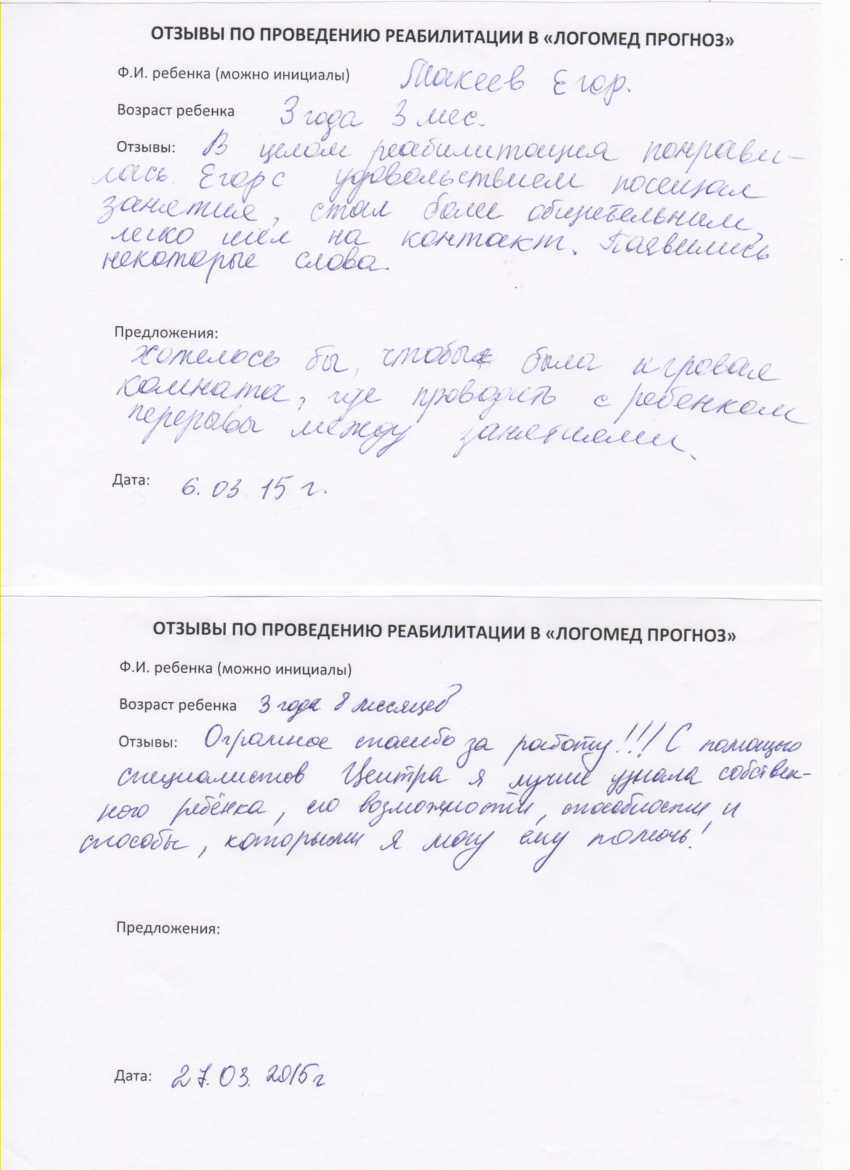 ОТЗЫВЫ ПО ПРОВЕДЕНИЮ РЕАБИЛИТАЦИИ В «ЛОГОМЕД ПРОГНОЗ»
Ф.И. ребенка (можно инициалы) Макеев Егор.
Возраст ребенка 3 года 3 мес.
Отзывы: В целом реабилитация понрави-
лась. Егор с удовольствием посещал
занятия, стал более общительным,
легко шел на контакт. Появились
некоторые слова.
Предложения:
Хотелось бы, чтобы была игровая
комната, где проводить с ребенком
перерывы между занятиями.
Дата: 6.03.15 г.
ОТЗЫВЫ ПО ПРОВЕДЕНИЮ РЕАБИЛИТАЦИИ В «ЛОГОМЕД ПРОГНОЗ»
Ф.И. ребенка (можно инициалы)
Возраст ребенка 3 года 8 месяцев
Отзывы: Огромное спасибо за работу!!! С помощью
специалистов Центра я лучше узнала собствен-
ного ребёнка, его возможности, способности и
способы, которыми я могу ему помочь!
Предложения:
Дата: 27.03.2015г